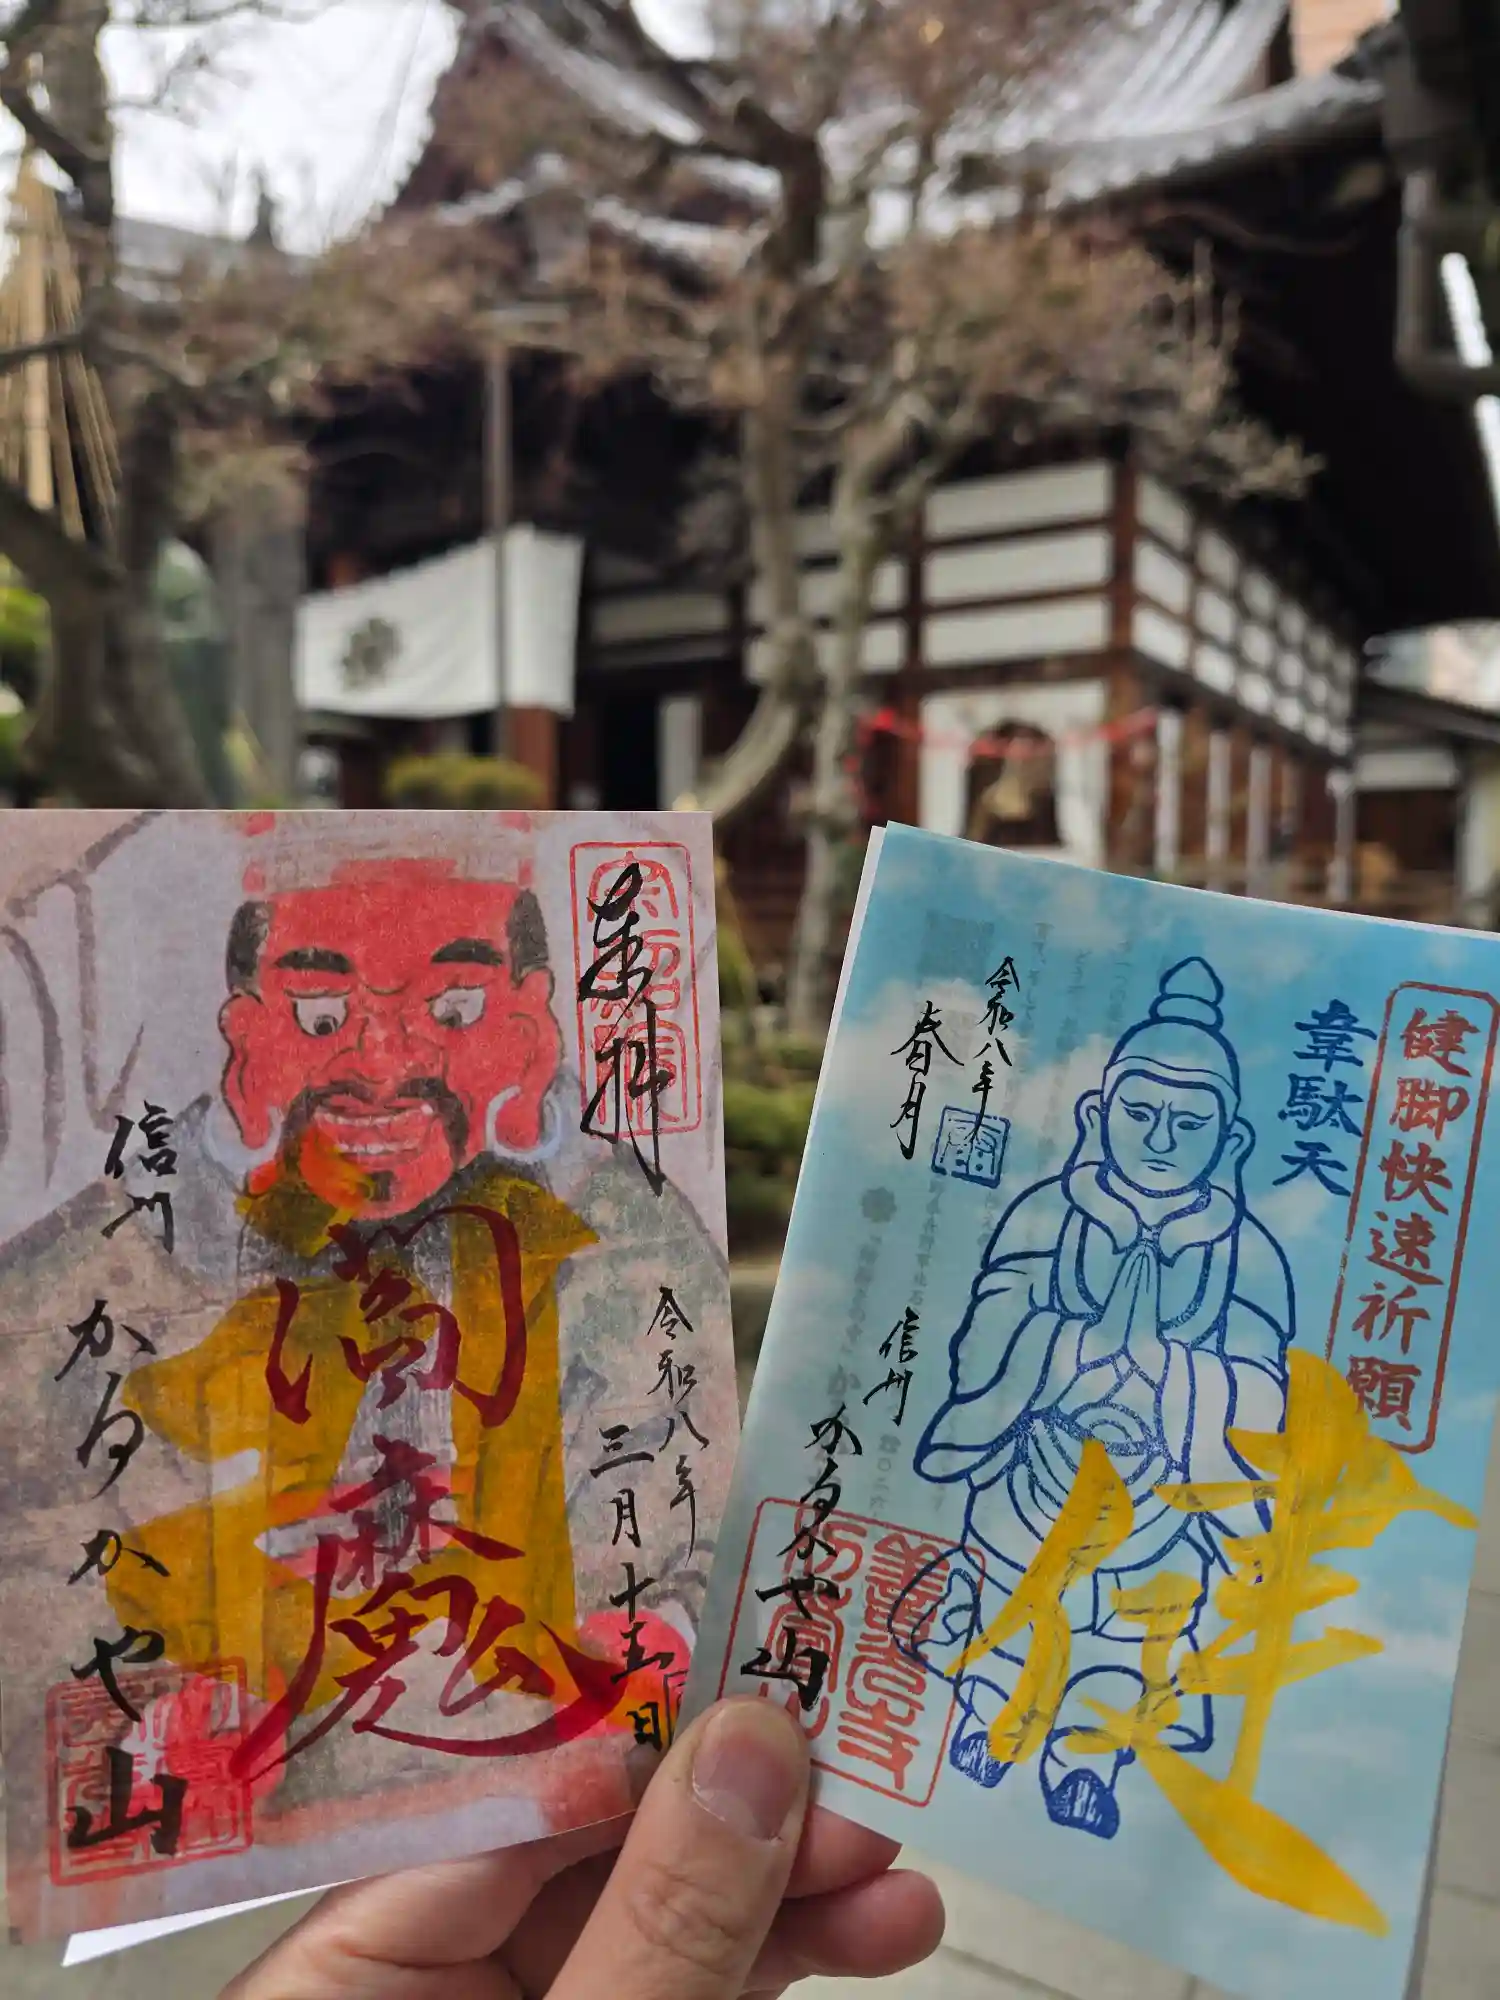 奉拝
令和八年
三月十五日
閻魔
信州
かるかや山
健脚快速祈願
韋駄天
令和八年
春月
健
信州
かるかや山